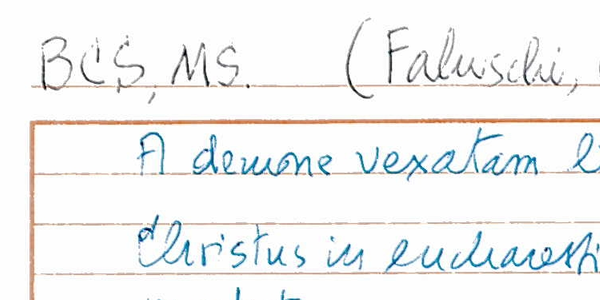 BCS, MS. (Faluschi,
A demone vexatam
Christus in eucharesti